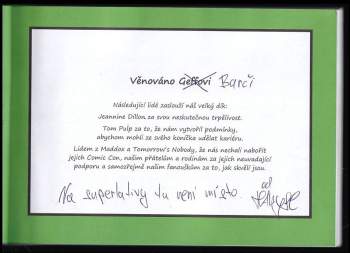 Věnováno Geffovi Barči
Následující lidé zaslouží náš velký dík:
Jeannine Dillon za svou neskutečnou trpělivost.
Tom Pulp za to, že nám vytvořil podmínky,
abychom mohli ze svého koníčka udělat kariéru.
Lidem z Maddox a Tomorrow's Nobody, že nás nechali nabořit
jejich Comic Con, našim přátelům a rodinám za jejich neuvadající
podporu a samozřejmě našim fanouškům za to, jak skvělí jsou.
Na superlativy tu není místo.
od